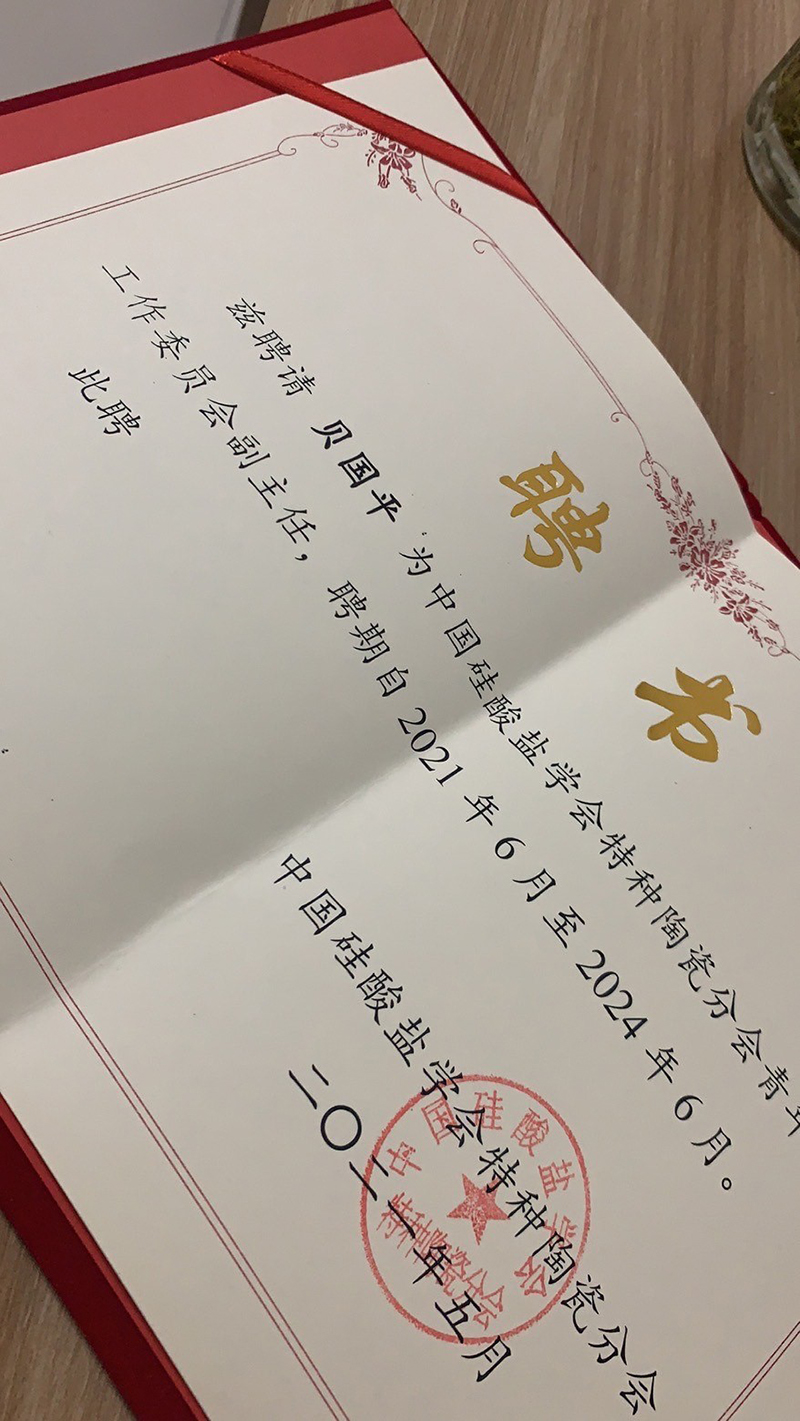 聘书
兹聘请 贝国平 为中国硅酸盐学会特种陶瓷分会青年
工作委员会副主任，聘期自2021年6月至2024年6月。
此聘
中国硅酸盐学会特种陶瓷分会
二〇二一年五月
中国硅酸盐学会
特种陶瓷分会